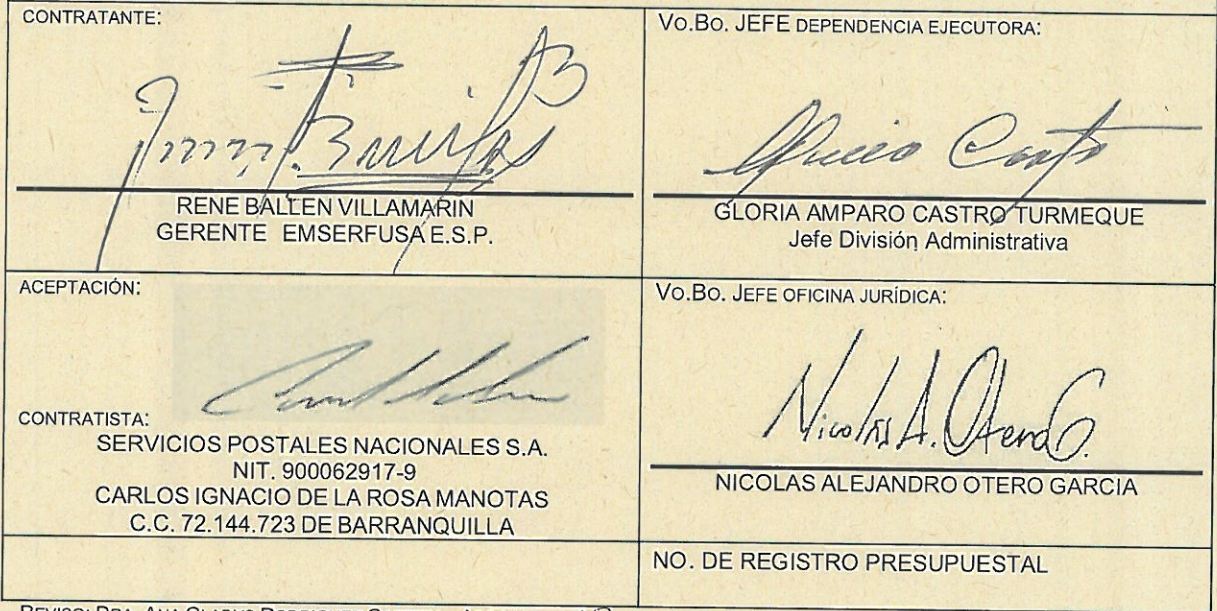 CONTRATANTE:
RENE BALLEN VILLAMARIN
GERENTE EMSERFUSA E.S.P.
Vo.Bo. JEFE DEPENDENCIA EJECUTORA:
GLORIA AMPARO CASTRO TURMEQUE
Jefe División Administrativa
ACEPTACIÓN:
CONTRATISTA:
SERVICIOS POSTALES NACIONALES S.A.
NIT. 900062917-9
CARLOS IGNACIO DE LA ROSA MANOTAS
C.C. 72.144.723 DE BARRANQUILLA
Vo.Bo. JEFE OFICINA JURÍDICA:
Nicolas A. Otero G.
NICOLAS ALEJANDRO OTERO GARCIA
NO. DE REGISTRO PRESUPUESTAL